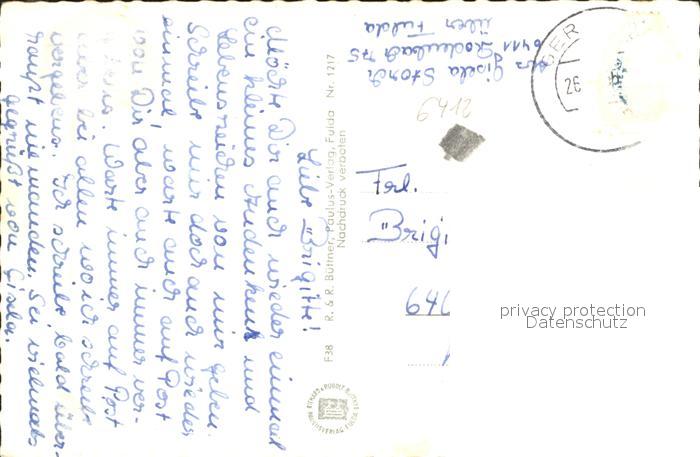 Abs. Gisela Storch
6411 Dorfstr 75
über Fulda
Liebe "Brigitte!
Möchte Dir auch wieder einmal
ein kleines Andenken und
Lebenszeichen von mir geben.
Schreibe mir doch auch wieder
einmal, warte auch auf Post
von Dir, aber auch immer ver-
gebens. Warte immer auf Post
auch bei allen wo ich schreibe
vergebens. Ich schreibe bald über-
haupt niemanden. Sei vielmals
gegrüßt von Gisela.
F38 R. & R. Büttner, Paulus-Verlag, Fulda Nr. 1217
Nachdruck verboten
6412
Frl.
"Brigi
640
26
privacy protection
Datenschutz